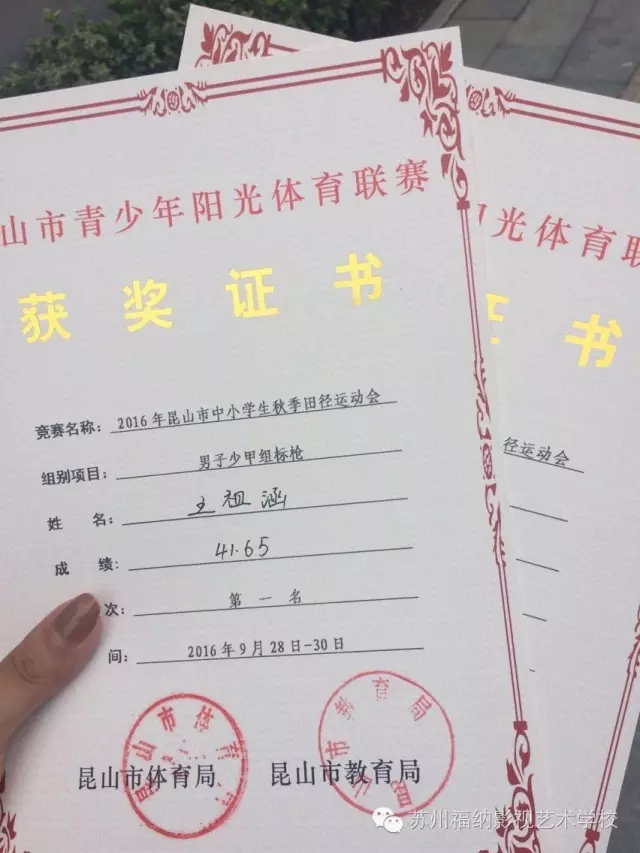 山市青少年阳光体育联赛
获奖证书
竞赛名称：2016年昆山市中小学生秋季田径运动会
组别项目：男子少甲组标枪
姓 名：王祖涵
成 绩：41.65
次：第一名
间：2016年9月28日-30日
昆山市体育局
昆山市教育局
昆山市体育局
昆山市教育局
光体育联
书
径运动会
苏州福纳影视艺术学校